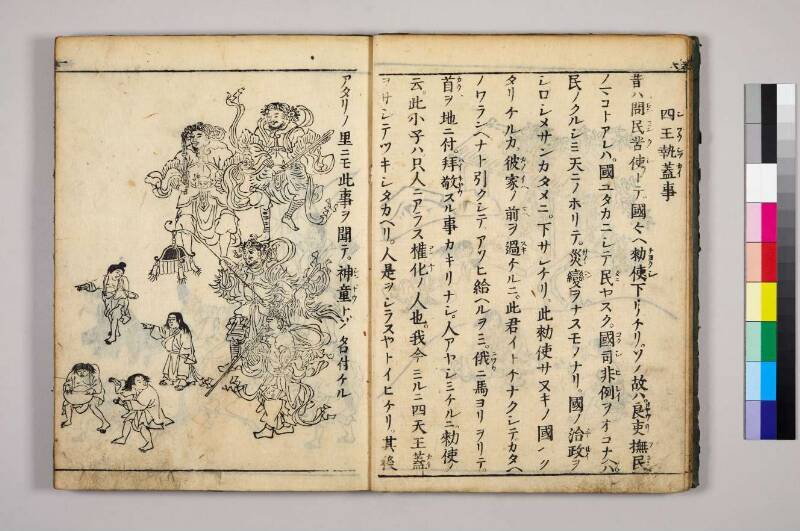 四王執蓋事
昔ハ問民苦使トテ。國々ヘ勅使下リチリ。ソノ故ハ。良吏撫民
ノマコトアレハ。國ユタカニシテ民ヤスク。國司非例ヲオコナヘハ
民ノクルシミ天ニノホリテ。災變ヲナスモノナリ。國ノ治政ヲ
シロシメサンカタメニ。下サレチリ。此勅使サヌキノ國ヘクタリ
タリチルカ。彼家ノ前ヲ過チルニ。此君イトチナクシテカタヘ
ノワランヘナト引クシテ。アソヒ給ヘルヲミ。俄ニ馬ヨリヲリテ。
首ヲ地ニ付。拜敬スル事カキリナシ。人アヤシミチルニ。勅使ノ
云。此小子ハ只人ニアラス權化ノ人也。我今ミルニ四天王蓋
ヲサシテツキシタカヘリ。人是ヲシラスヤトイヒチリ。其後
アタリノ里ニモ此事ヲ聞テ。神童トゾ名付チル